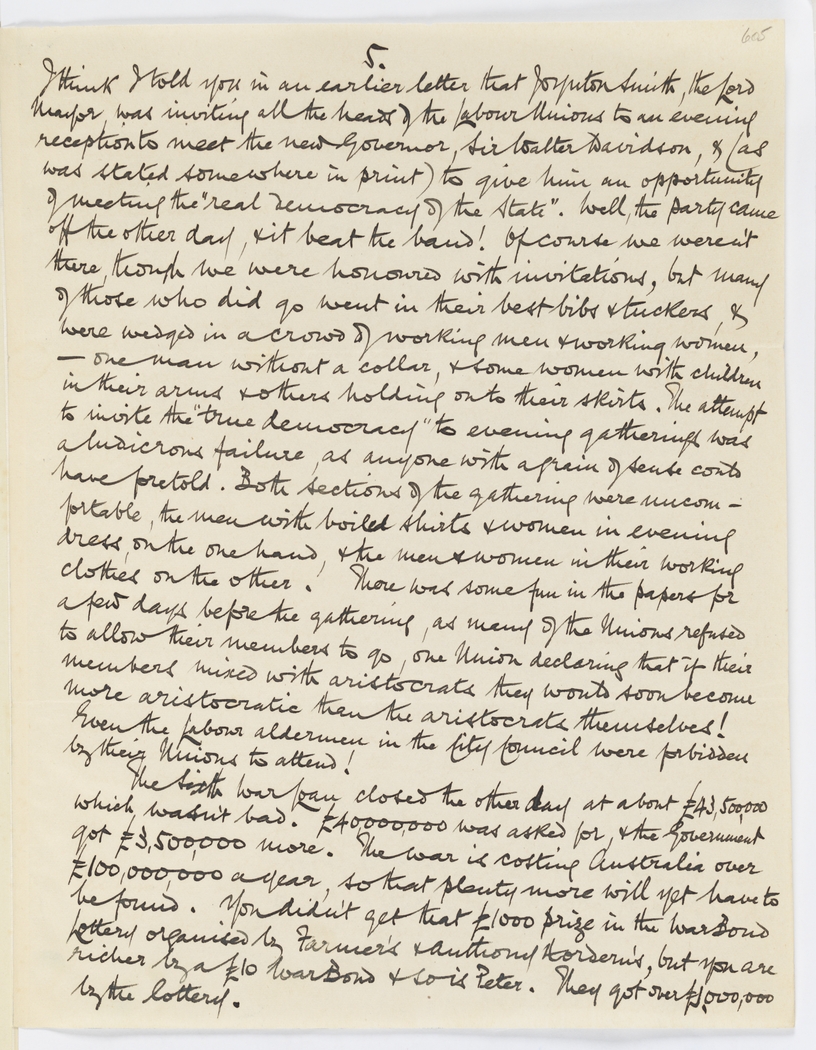 605
5.
I think I told you in an earlier letter that Joynton Smith, the Lord
Mayor, was inviting all the heads of the Labour Unions to an evening
reception to meet the new Governor, Sir Walter Davidson, & (as
was stated somewhere in print) to give him an opportunity
of meeting the "real Democracy of the State". Well, the party came
off the other day, & it beat the band! Of course we weren't
there, though we were honoured with invitations, but many
of those who did go went in their best bibs & tuckers, &
were wedged in a crowd of working men & working women,
— one man without a collar, & some women with children
in their arms & others holding onto their skirts. The attempt
to invite the "true democracy" to evening gatherings was
a ludicrous failure, as anyone with a grain of sense could
have foretold. Both sections of the gathering were uncom-
fortable, the men with boiled shirts & women in evening
dress, on the one hand, & the men & women in their working
clothes on the other! There was some fun in the papers for
a few days before the gathering, as many of the Unions refused
to allow their members to go, one Union declaring that if their
members mixed with aristocrats they would soon become
more aristocratic than the aristocrats themselves!
Even the Labour aldermen in the City Council were forbidden
by their Unions to attend!
The Sixth War Loan closed the other day at about £43,500000
which wasn't bad. £40000000 was asked for, & the Government
got £3,500,000 more. The war is costing Australia over
£100,000,000 a year, so that plenty more will yet have to
be found. You didn't get that £1000 prize in the War Bond
Lottery organised by Farmer's & Anthony Hordern's, but you are
richer by a £10 War Bond & so is Peter. They got over £1,000,000
by the lottery.